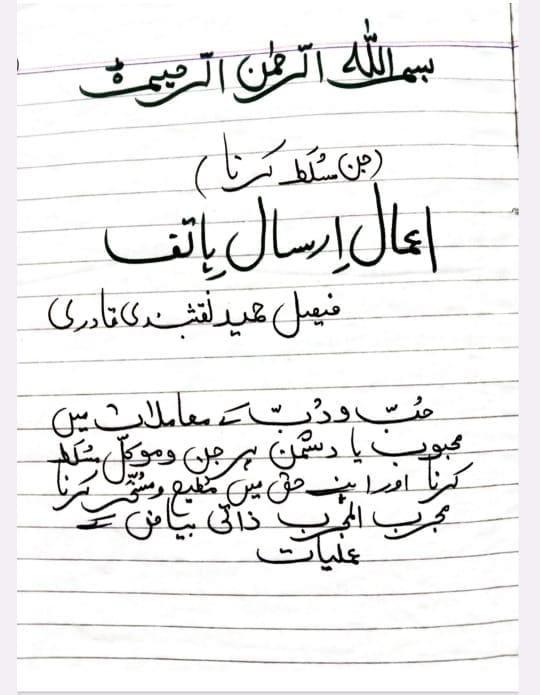 بسم اللہ الرّحمٰن الرّحیم
(جن مسُلط کرنا)
اعمال اِرسال ہاتف
فیصل حمید نقشبندی قادری
حبّ و دُبّ کے معاملات میں
محبوب یا دشمن پر جن و موکّل مسُلط
کرنا اور اپنے حق میں مطیع و مسُخّر کرنا
مجرب المجرب ذاتی بیاض کے
عملیات